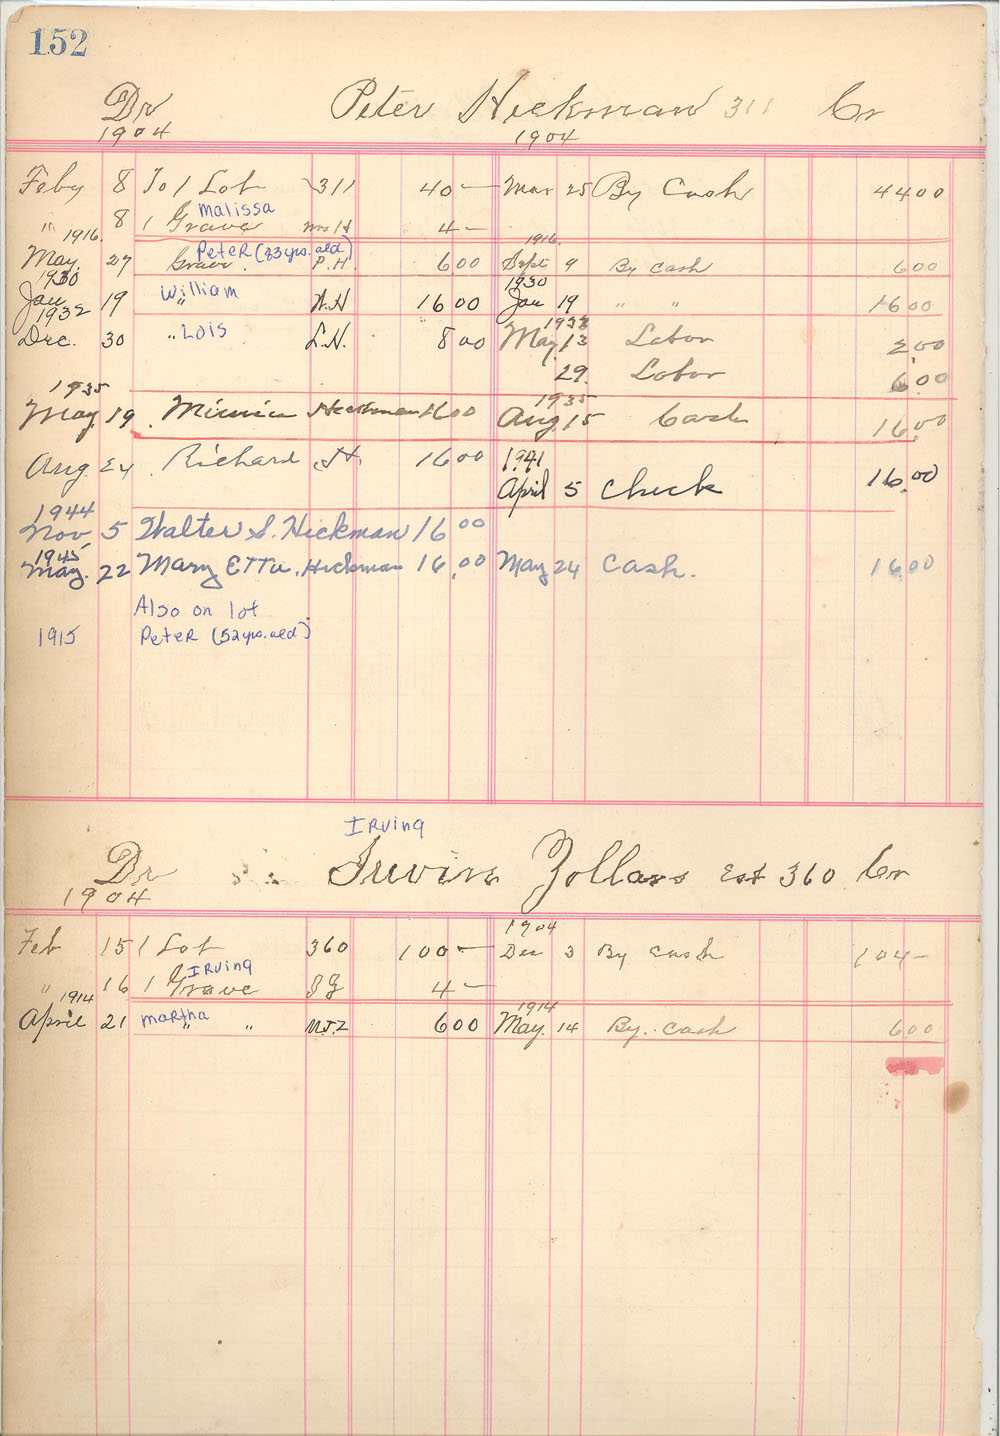 152
Dr Peter Hickman 311 Cr
1904 1904
Feby 8 To 1 Lot 311 40 — Mar 25 By Cash 44 00
Malissa
" 8 1 Grave Mrs H 4 —
1916 Peter (83 yrs. old) 1916
May 27 Grave P.H. 6 00 Sept 9 By cash 6 00
1930 William 1930
Jan 19 " W.H 16 00 Jan 19 " " 16 00
1932 1933
Dec. 30 " Lois L.H. 8 00 May 13 Labor 2.00
29. Labor 6.00
1935 1935
May 19 Minnie Heckman 16 00 Aug 15 Cash 16.00
Aug. 24 Richard H. 16 00 1941
April 5 Check 16.00
1944
Nov 5 Walter S. Hickman 16 00
1945
May. 22 Mary Etta Hickman 16.00 May 24 Cash. 16.00
Also on lot
1915 Peter (52 yrs. old)
Irving
Dr Irvin Zollars Est 360 Cr
1904
1904
Feb 15 1 Lot 360 100 — Dec 3 By cash 104 —
Irving
" 16 1 Grave I Z 4 —
1914 1914
April 21 Martha " " M.J.Z 6 00 May. 14 By. cash 6.00